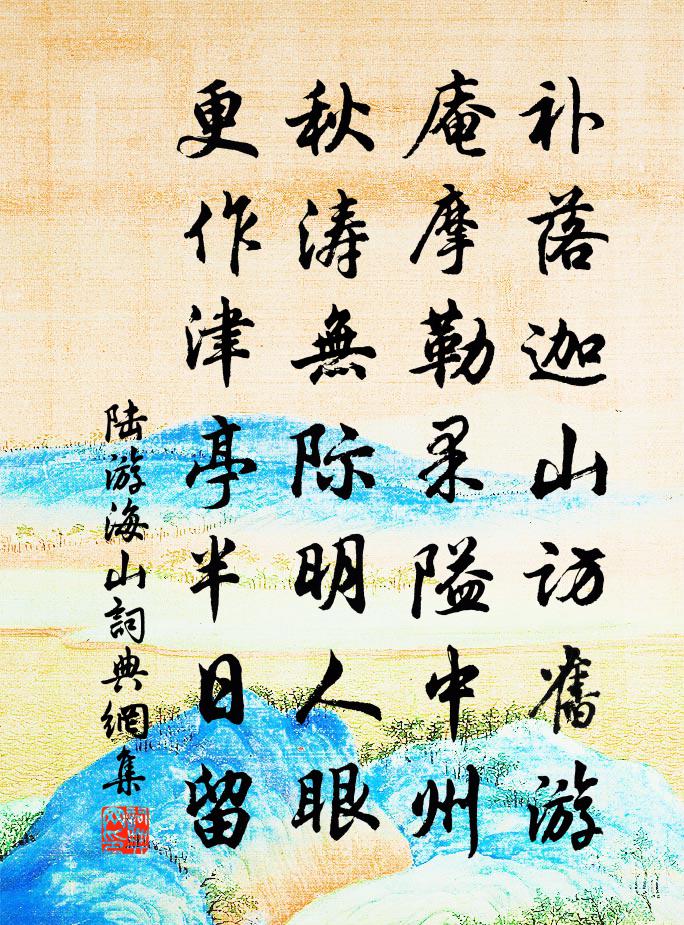 补落迦山访舊游
庵摩勒果隘中州
秋涛無际明人眼
更作津亭半日留
陆游海山詞典網集